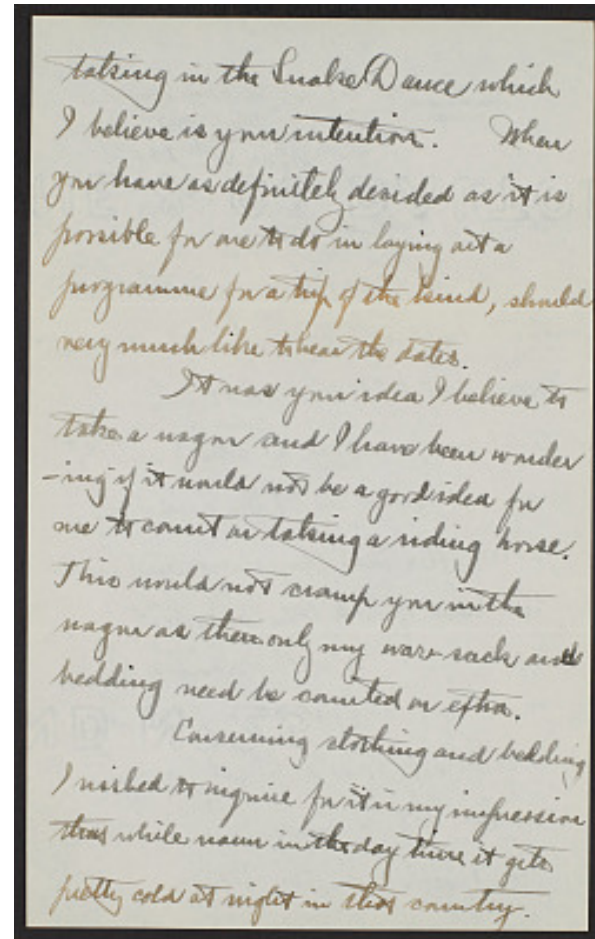 taking in the Snake Dance which
I believe is your intention. When
you have as definitely decided as it is
possible for one to do in laying out a
programme for a trip of the kind, should
very much like to hear the dates.
It was your idea I believe to
take a wagon and I have been wonder
-ing if it would not be a good idea for
me to count on taking a riding horse.
This would not cramp you in the
wagon as then only my war-sack and
bedding need be counted on extra.
Concerning clothing and bedding
I wished to inquire for it is my impression
that while warm in the day time it gets
pretty cold at night in that country.